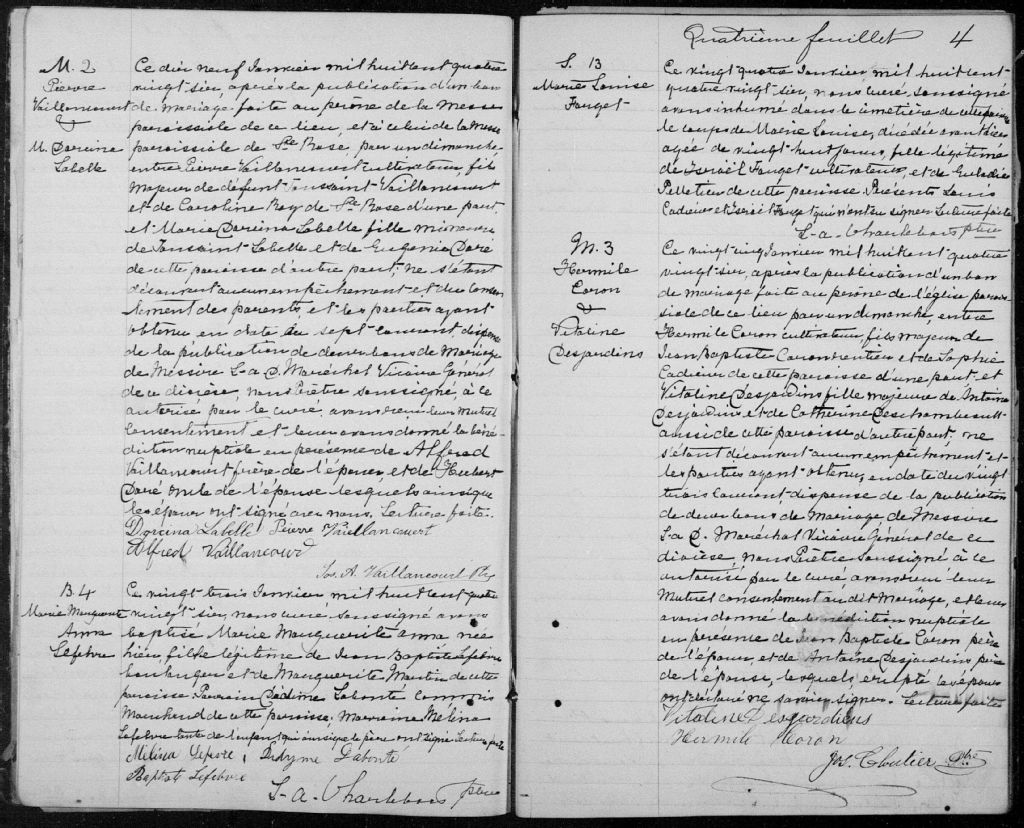 M. 2
Pierre
Vaillancourt
&
M. Dorcina
Labelle
Ce dix neuf Janvier mil huit cent quatre
vingt-six, après la publication d'un ban
de mariage faite au prône de la messe
paroissiale de ce lieu, et à celui de la messe
paroissiale de Ste Rose, par un dimanche
entre Pierre Vaillancourt cultivateur, fils
majeur de défunt Toussaint Vaillancourt
et de Caroline Roy de Ste Rose d'une part,
et Marie Dorcina Labelle fille mineure
de Toussaint Labelle et de Eugénie Doré
de cette paroisse d'autre part; ne s'étant
découvert aucun empêchement et du consen
tement des parents, et les parties ayant
obtenu en date du sept courant, dispense
de la publication de deux bans de Mariage
de Messire L. a D. Maréchal Vicaire Général
de ce diocèse, nous Prêtre soussigné, à ce
autorisé par le curé, avons reçu leur mutuel
consentement et leur avons donné la béné-
diction nuptiale en présence de Alfred
Vaillancourt frère de l'époux, et de Hubert
Doré oncle de l'épouse lesquels ainsi que
les époux ont signé avec nous. Lecture faite.
Dorcina Labelle Pierre Vaillancourt
Alfred Vaillancourt
Jos. A. Vaillancourt Ptre
B. 4
Marie Marguerite
Anna
Lefebvre
Ce vingt trois Janvier mil huit cent quatre
vingt-six, nous curé soussigné avons
baptisé Marie Marguerite anna née
hier, fille légitime de Jean Baptiste Lefebvre
boulanger et de Marguerite Martin de cette
paroisse. Parrain Dédime Labonté commis
Marchand de cette paroisse. Marraine Mélina
Lefebvre tante de l'enfant qui ainsi que le père ont signé. Lecture faite
Mélina Lefevre, Didyme Labonté
Baptiste Lefebvre
L-a-Charlebois ptre
Quatrième feuillet 4
S. 13
Marie Louise
Forget
Ce vingt quatre Janvier mil huit cent-
quatre vingt-six, nous curé, soussigné
avons inhumé dans le cimetière de cette paroisse
le corps de Marie Louise, décédée avant hier
agée de vingt-huit jours, fille légitime
de Israël Forget cultivateur, et de Euladie
Pelletier de cette paroisse. Présents Louis
Cadieux et Israël Forget qui n'ont su signer. Lecture faite
L-a-Charlebois ptre
M. 3
Hermile
Caron
&
Vitaline
Desjardins
Ce vingt-cinq Janvier mil huit cent quatre
vingt-six, après la publication d'un ban
de mariage faite au prône de l'église parois
siale de ce lieu par un dimanche, entre
Hermile Caron cultivateur, fils majeur de
Jean Baptiste Caron rentier et de Sophie
Cadieux de cette paroisse d'une part, et
Vitaline Desjardins fille majeure de Antoine
Desjardins et de Catherine Deschambeault
aussi de cette paroisse d'autre part, ne
s'étant découvert aucun empêchement et
les parties ayant obtenu, en date du vingt
trois courant, dispense de la publication
de deux bans de Mariage, de Messire
L. a D. Maréchal Vicaire Général de ce
diocèse, nous Prêtre soussigné à ce
autorisé par le curé avons reçu leur
Mutuel consentement au dit Mariage, et leur
avons donné la bénédiction nuptiale
en présence de Jean Baptiste Caron père
de l'époux, et de Antoine Desjardins père
de l'épouse, lesquels excepté les époux
ont déclaré ne savoir signer. Lecture faite
Vitaline Desjardiens
Hermile Caron
Jos. Ptre